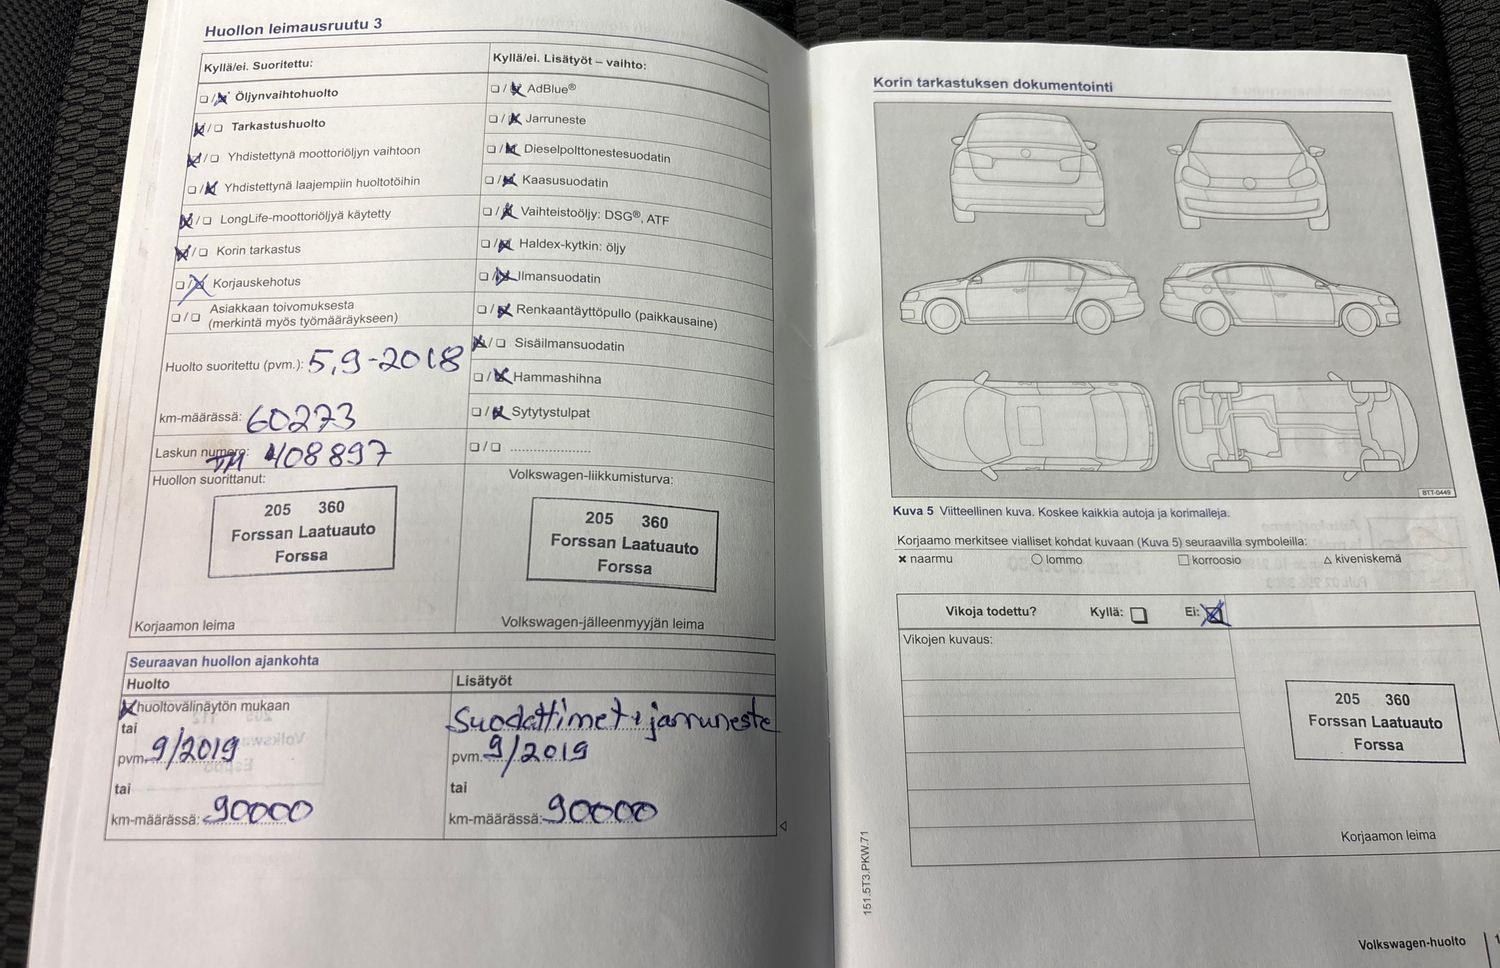 Huollon leimausruutu 3
Kyllä/ei. Suoritettu:
☐/☒ Öljynvaihtohuolto
☒/☐ Tarkastushuolto
☒/☐ Yhdistettynä moottoriöljyn vaihtoon
☐/☒ Yhdistettynä laajempiin huoltotöihin
☒/☐ LongLife-moottoriöljyä käytetty
☒/☐ Korin tarkastus
☐/☒ Korjauskehotus
☐/☐ Asiakkaan toivomuksesta
(merkintä myös työmääräykseen)
Huolto suoritettu (pvm.): 5,9-2018
km-määrässä: 60273
Laskun numero: TM 408897
Huollon suorittanut:
205 360
Forssan Laatuauto
Forssa
Korjaamon leima
Kyllä/ei. Lisätyöt – vaihto:
☐/☒ AdBlue®
☐/☒ Jarruneste
☐/☒ Dieselpolttonestesuodatin
☐/☒ Kaasusuodatin
☐/☒ Vaihteistoöljy: DSG®, ATF
☐/☒ Haldex-kytkin: öljy
☐/☒ Ilmansuodatin
☐/☒ Renkaantäyttöpullo (paikkausaine)
☒/☐ Sisäilmansuodatin
☐/☒ Hammashihna
☐/☒ Sytytystulpat
☐/☐ ....................
Volkswagen-liikkumisturva:
205 360
Forssan Laatuauto
Forssa
Volkswagen-jälleenmyyjän leima
Seuraavan huollon ajankohta
Huolto
☒ huoltovälinäytön mukaan
tai
pvm. 9/2019
tai
km-määrässä: 90000
Lisätyöt
Suodattimet + jarruneste
pvm. 9/2019
tai
km-määrässä: 90000
Korin tarkastuksen dokumentointi
BTT-0449
Kuva 5 Viitteellinen kuva. Koskee kaikkia autoja ja korimalleja.
Korjaamo merkitsee vialliset kohdat kuvaan (Kuva 5) seuraavilla symboleilla:
✖ naarmu ○ lommo □ korroosio △ kiveniskemä
Vikoja todettu? Kyllä: ☐ Ei: ☒
Vikojen kuvaus:
205 360
Forssan Laatuauto
Forssa
Korjaamon leima
151.5T3.PKW.71
Volkswagen-huolto